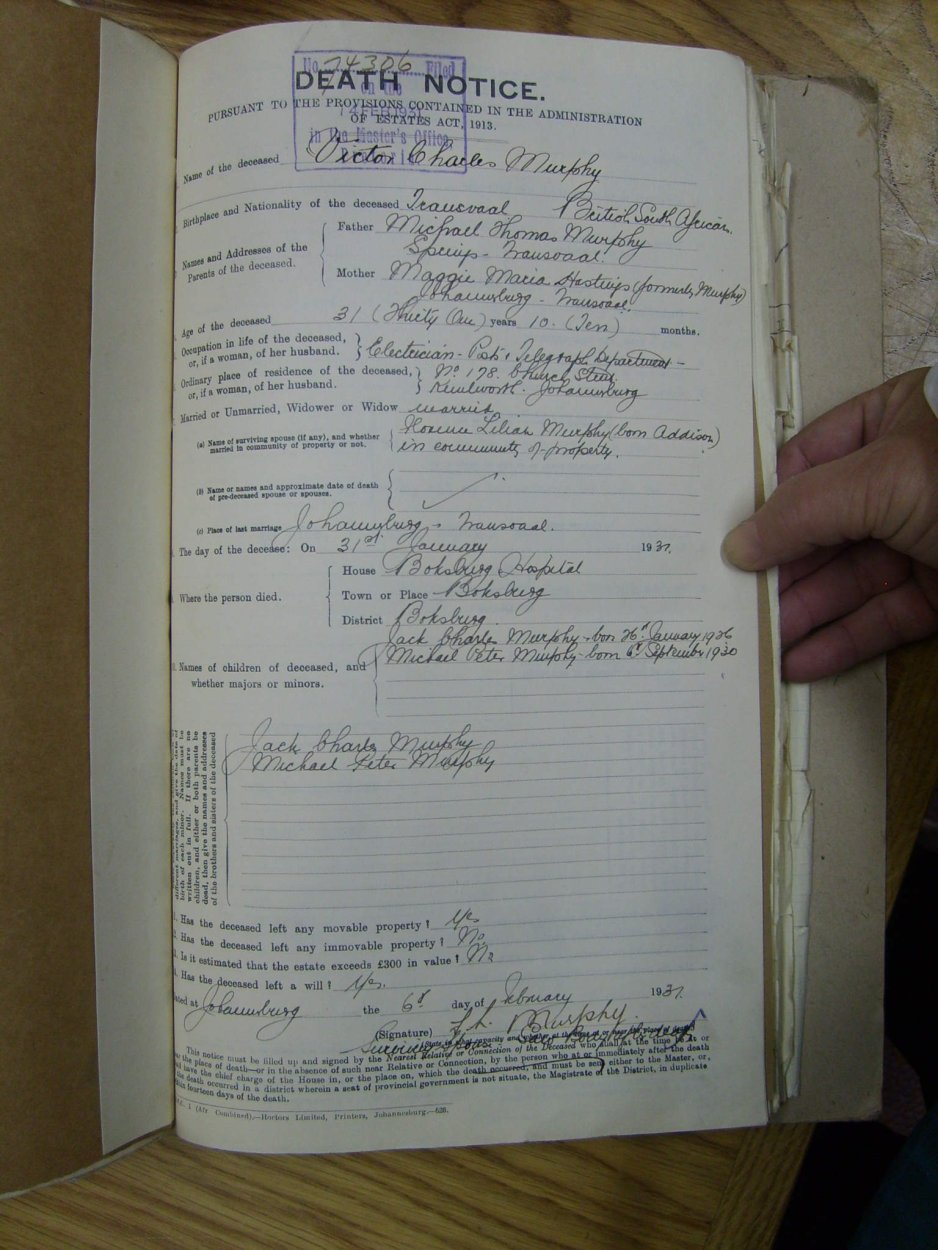 No. 74306 Filed
on the
14 FEB 1931
in the Master's Office
DEATH NOTICE.
PURSUANT TO THE PROVISIONS CONTAINED IN THE ADMINISTRATION
OF ESTATES ACT, 1913.
Name of the deceased Victor Charles Murphy
Birthplace and Nationality of the deceased Transvaal British South African.
Names and Addresses of the
Parents of the deceased.
Father Michael Thomas Murphy
Springs - Transvaal.
Mother Maggie Maria Hastings (formerly Murphy)
Johannesburg - Transvaal.
Age of the deceased 31 (Thirty One) years 10. (Ten) months.
Occupation in life of the deceased,
or, if a woman, of her husband. Electrician - Post & Telegraph Department -
Ordinary place of residence of the deceased, No. 178. Church Street
or, if a woman, of her husband. Kenilworth - Johannesburg
Married or Unmarried, Widower or Widow married
Florence Lilian Murphy (born Addison)
(a) Name of surviving spouse (if any), and whether
married in community of property or not. in community of property.
(b) Name or names and approximate date of death
of pre-deceased spouse or spouses.
(c) Place of last marriage Johannesburg - Transvaal.
The day of the decease: On 31st January 1931.
Where the person died.
House Boksburg Hospital
Town or Place Boksburg
District Boksburg.
Jack Charles Murphy - born 26th January 1926
Michael Peter Murphy - born 6th September 1930
10. Names of children of deceased, and
whether majors or minors.
birth of each minor. Names must be
written out in full. If there are no
children, and either or both parents be
dead, then give the names and addresses
of the brothers and sisters of the deceased
Jack Charles Murphy
Michael Peter Murphy
Has the deceased left any movable property? Yes
Has the deceased left any immovable property? No
Is it estimated that the estate exceeds £300 in value? No
Has the deceased left a will? Yes.
Dated at Johannesburg the 6th day of February 1931.
(Signature) F. L. Murphy.
Surviving Spouse
This notice must be filled up and signed by the Nearest Relative or Connection of the Deceased who shall at the time be at or
near the place of death—or in the absence of such near Relative or Connection, by the person who at or immediately after the death
shall have the chief charge of the House in, or the place on, which the death occurred, and must be sent either to the Master, or,
if the death occurred in a district wherein a seat of provincial government is not situate, the Magistrate of the District, in duplicate
within fourteen days of the death.
(Afr Combined).—Hortors Limited, Printers, Johannesburg.—628.